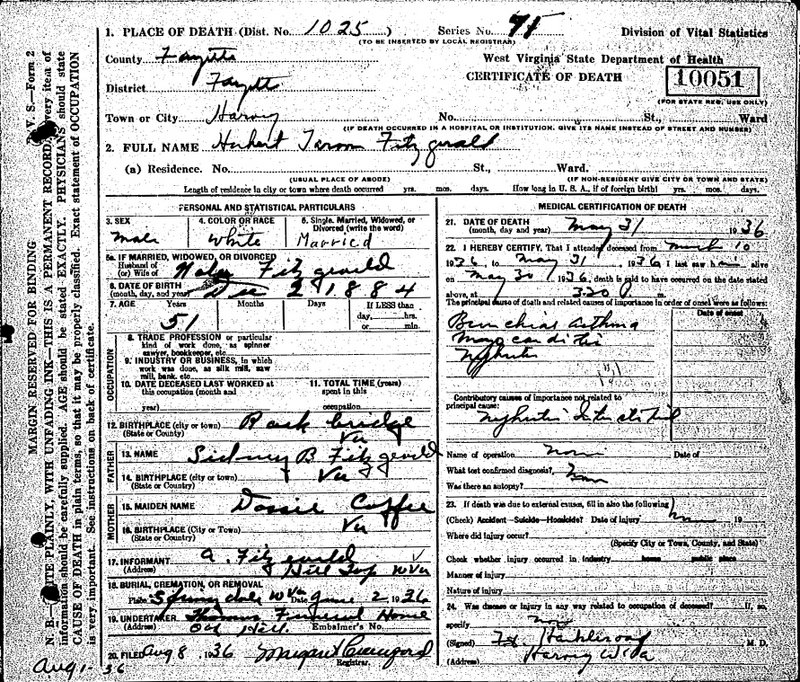 1. PLACE OF DEATH (Dist. No. 1025) Series No. 95 Division of Vital Statistics
(TO BE INSERTED BY LOCAL REGISTRAR)
County Fayette West Virginia State Department of Health
CERTIFICATE OF DEATH 10051
District Fayette (FOR STATE REG. USE ONLY)
Town or City Harvey No. St., Ward
(IF DEATH OCCURRED IN A HOSPITAL OR INSTITUTION, GIVE ITS NAME INSTEAD OF STREET AND NUMBER)
2. FULL NAME Herbert Fitzgerald
(a) Residence. No. St., Ward.
(USUAL PLACE OF ABODE) (IF NON-RESIDENT GIVE CITY OR TOWN AND STATE)
Length of residence in city or town where death occurred yrs. mos. days. How long in U. S. A., if of foreign birth? yrs. mos. days.
PERSONAL AND STATISTICAL PARTICULARS
3. SEX 4. COLOR OR RACE 5. Single, Married, Widowed, or
Divorced (write the word)
Male White Married
5a. IF MARRIED, WIDOWED, OR DIVORCED
Husband of
(or) Wife of Fitzgerald
6. DATE OF BIRTH
(month, day, and year) Dec 2 1884
7. AGE Years Months Days If LESS than
51 day, hrs.
or min.
OCCUPATION
8. TRADE PROFESSION or particular
kind of work done, as spinner
sawyer, bookkeeper, etc.
9. INDUSTRY OR BUSINESS, in which
work was done, as silk mill, saw
mill, bank, etc.
10. DATE DECEASED LAST WORKED at
this occupation (month and
year)
11. TOTAL TIME (years)
spent in this
occupation
12. BIRTHPLACE (city or town) Rock bridge
(State or County) Va
FATHER
13. NAME Sidney B Fitzgerald
14. BIRTHPLACE (city or town) Va
(State or Country)
MOTHER
15. MAIDEN NAME Dossie Coffee
16. BIRTHPLACE (City or Town) Va
(State or Country)
17. INFORMANT A. Fitzgerald
(Address) Hill Top W Va
18. BURIAL, CREMATION, OR REMOVAL
Place Springdale W Va Date June 2 1936
19. UNDERTAKER Thomas Funeral Home
(Address) Oak Hill Embalmer's No.
20. FILED Aug 8 1936 Margaret Crawford
Registrar.
MEDICAL CERTIFICATION OF DEATH
21. DATE OF DEATH
(month, day and year) May 31 1936
22. I HEREBY CERTIFY, That I attended deceased from March 10
1936 to May 31 1936 I last saw him alive
on May 30 1936, death is said to have occurred on the date stated
above, at 3:20 m.
The principal cause of death and related causes of importance in order of onset were as follows:
Date of onset
Bronchial Asthma
Myocarditis
Nephritis
Contributory causes of importance not related to
principal cause:
Nephritis Interstitial
Name of operation None Date of
What test confirmed diagnosis?
Was there an autopsy?
23. If death was due to external causes, fill in also the following
(Check) Accident—Suicide—Homicide? Date of injury 19
Where did injury occur?
(Specify City or Town, County, and State)
Check whether injury occurred in industry home public place
Manner of injury
Nature of injury
24. Was disease or injury in any way related to occupation of deceased? If so,
specify
(Signed) M. D.
(Address) Harvey W Va
V. S.—Form 2
MARGIN RESERVED FOR BINDING
N. B.—WRITE PLAINLY, WITH UNFADING INK—THIS IS A PERMANENT RECORD. Every item of
information should be carefully supplied. AGE should be stated EXACTLY. PHYSICIANS should state
CAUSE OF DEATH in plain terms, so that it may be properly classified. Exact statement of OCCUPATION
is very important. See instructions on back of certificate.
Aug 1 - 36